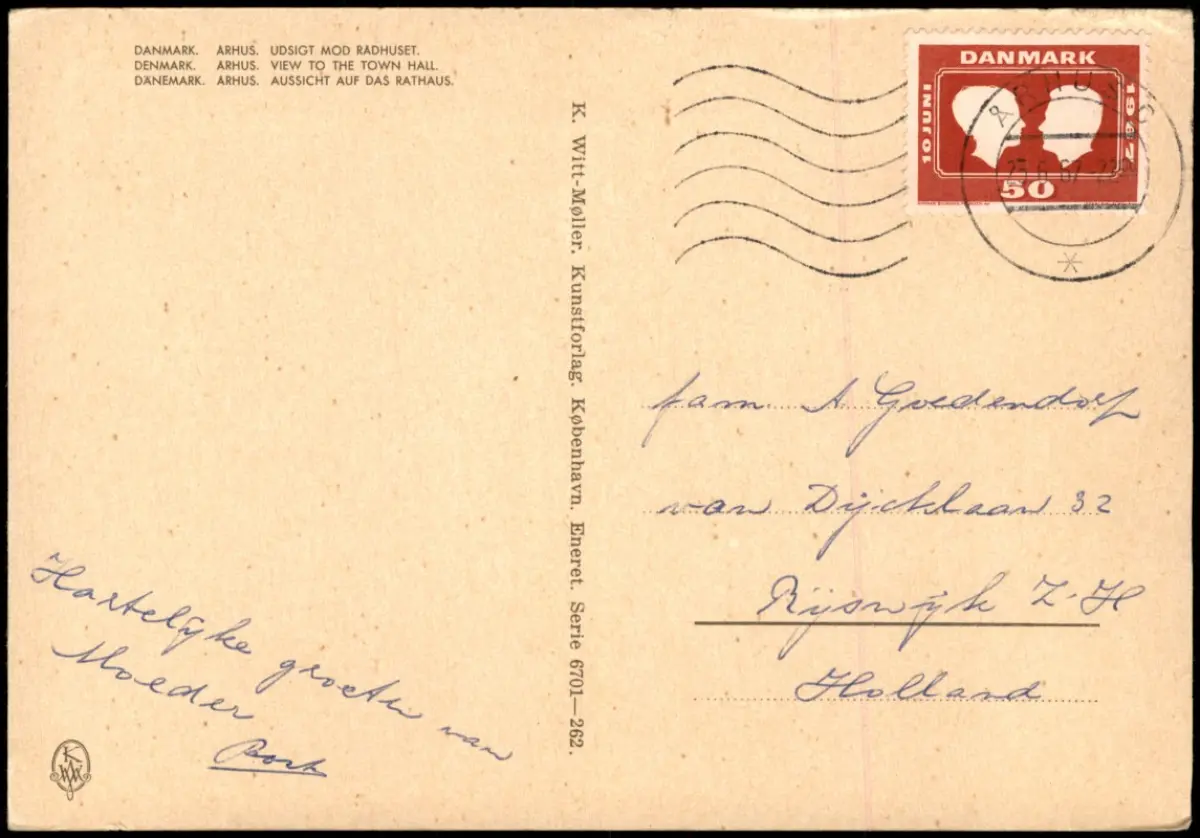 DANMARK. ARHUS. UDSIGT MOD RADHUSET.
DENMARK. ARHUS. VIEW TO THE TOWN HALL.
DÄNEMARK. ARHUS. AUSSICHT AUF DAS RATHAUS.
K. Witt-Møller. Kunstforlag. København. Eneret. Serie 6701—262.
DANMARK
10 JUNI
1967
50
ÅRHUS C
25.6.67
fam A Goedendorf
van Dijcklaan 32
Rijswijk Z-H
Holland
Hartelijke groeten van
Moeder